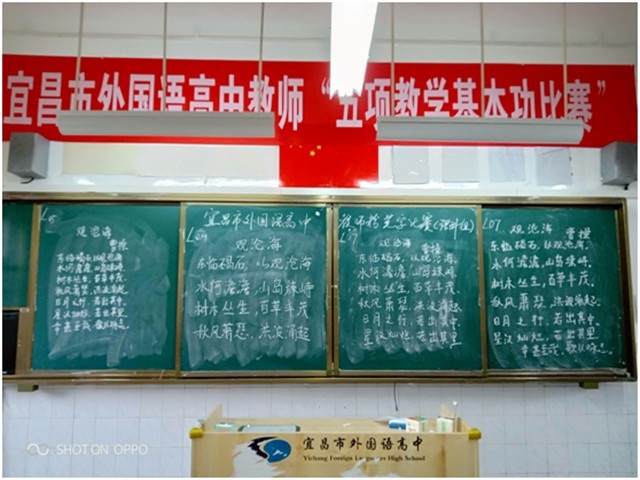 宜昌市外国语高中教师“五项教学基本功比赛”
宜昌市外国语高中
观沧海
曹操
东临碣石以观沧海
水何澹澹,山岛竦峙
树木丛生,百草丰茂
秋风萧瑟,洪波涌起
日月之行,若出其中
星汉灿烂,若出其里
幸甚至哉,歌以咏志
L04
观沧海
东临碣石,以观沧海
水何澹澹,山岛竦峙
树木丛生,百草丰茂
秋风萧瑟,洪波涌起
观沧海
曹操
东临碣石,以观沧海.
水何澹澹,山岛竦峙.
树木丛生,百草丰茂.
秋风萧瑟,洪波涌起.
日月之行,若出其中.
星汉灿烂,若出其里
L07
观沧海
曹操
东临碣石,以观沧海.
水何澹澹,山岛竦峙.
树木丛生,百草丰茂.
秋风萧瑟,洪波涌起.
日月之行,若出其中.
星汉灿烂,若出其里.
幸甚至哉,歌以咏志.
宜昌市外国语高中
Yichang Foreign Languages High School
SHOT ON OPPO